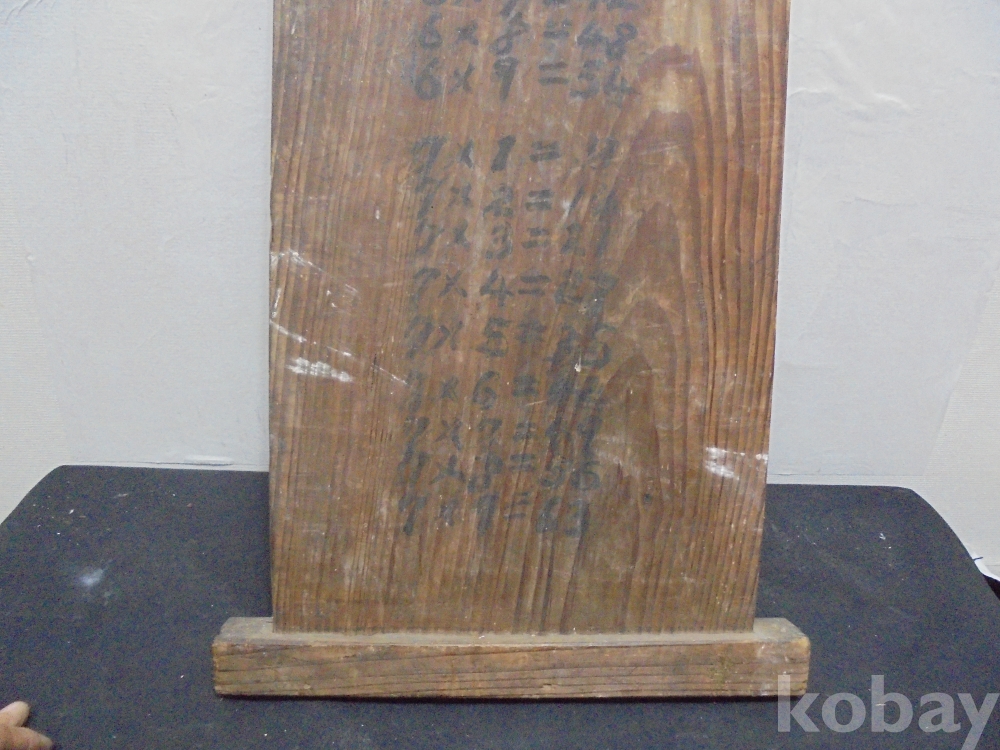 6 × 7 = 42
6 × 8 = 48
6 × 9 = 54
7 × 1 = 7
7 × 2 = 14
7 × 3 = 21
7 × 4 = 27
7 × 5 = 35
7 × 6 = 42
7 × 7 = 49
7 × 8 = 56
7 × 9 = 63
kobay